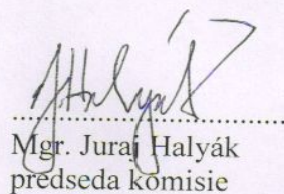 Mgr. Juraj Halyák
predseda komisie